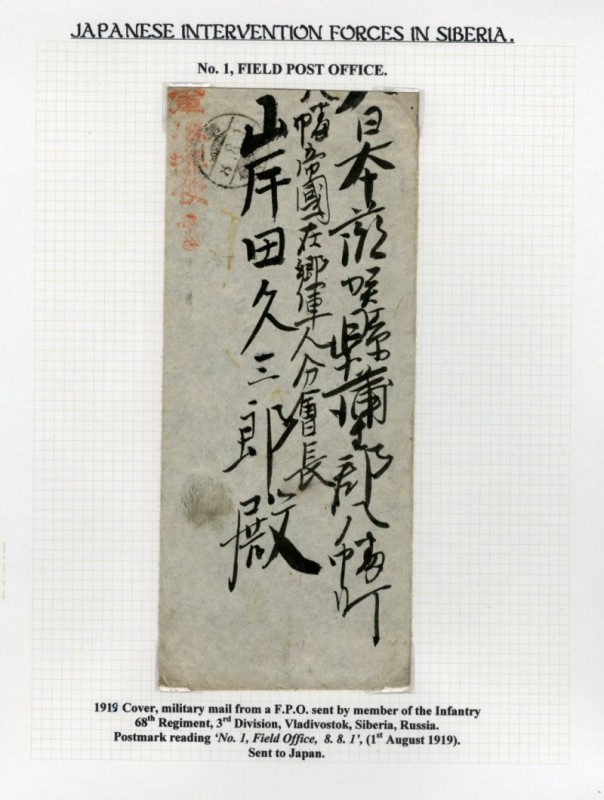 JAPANESE INTERVENTION FORCES IN SIBERIA.
No. 1, FIELD POST OFFICE.
日本滋賀縣蒲生郡八幡町
八幡帝國在郷軍人分會長
岸田久三郎殿
軍事郵便
1919 Cover, military mail from a F.P.O. sent by member of the Infantry
68th Regiment, 3rd Division, Vladivostok, Siberia, Russia.
Postmark reading ‘No. 1, Field Office, 8. 8. 1’, (1st August 1919).
Sent to Japan.